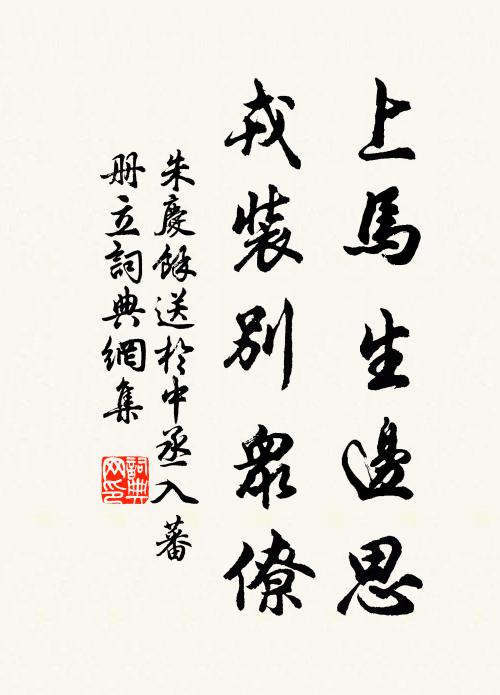 上馬生邊思
戎裝別眾僚
朱慶餘送於中丞入蕃
冊立詞典網集
詞典網印